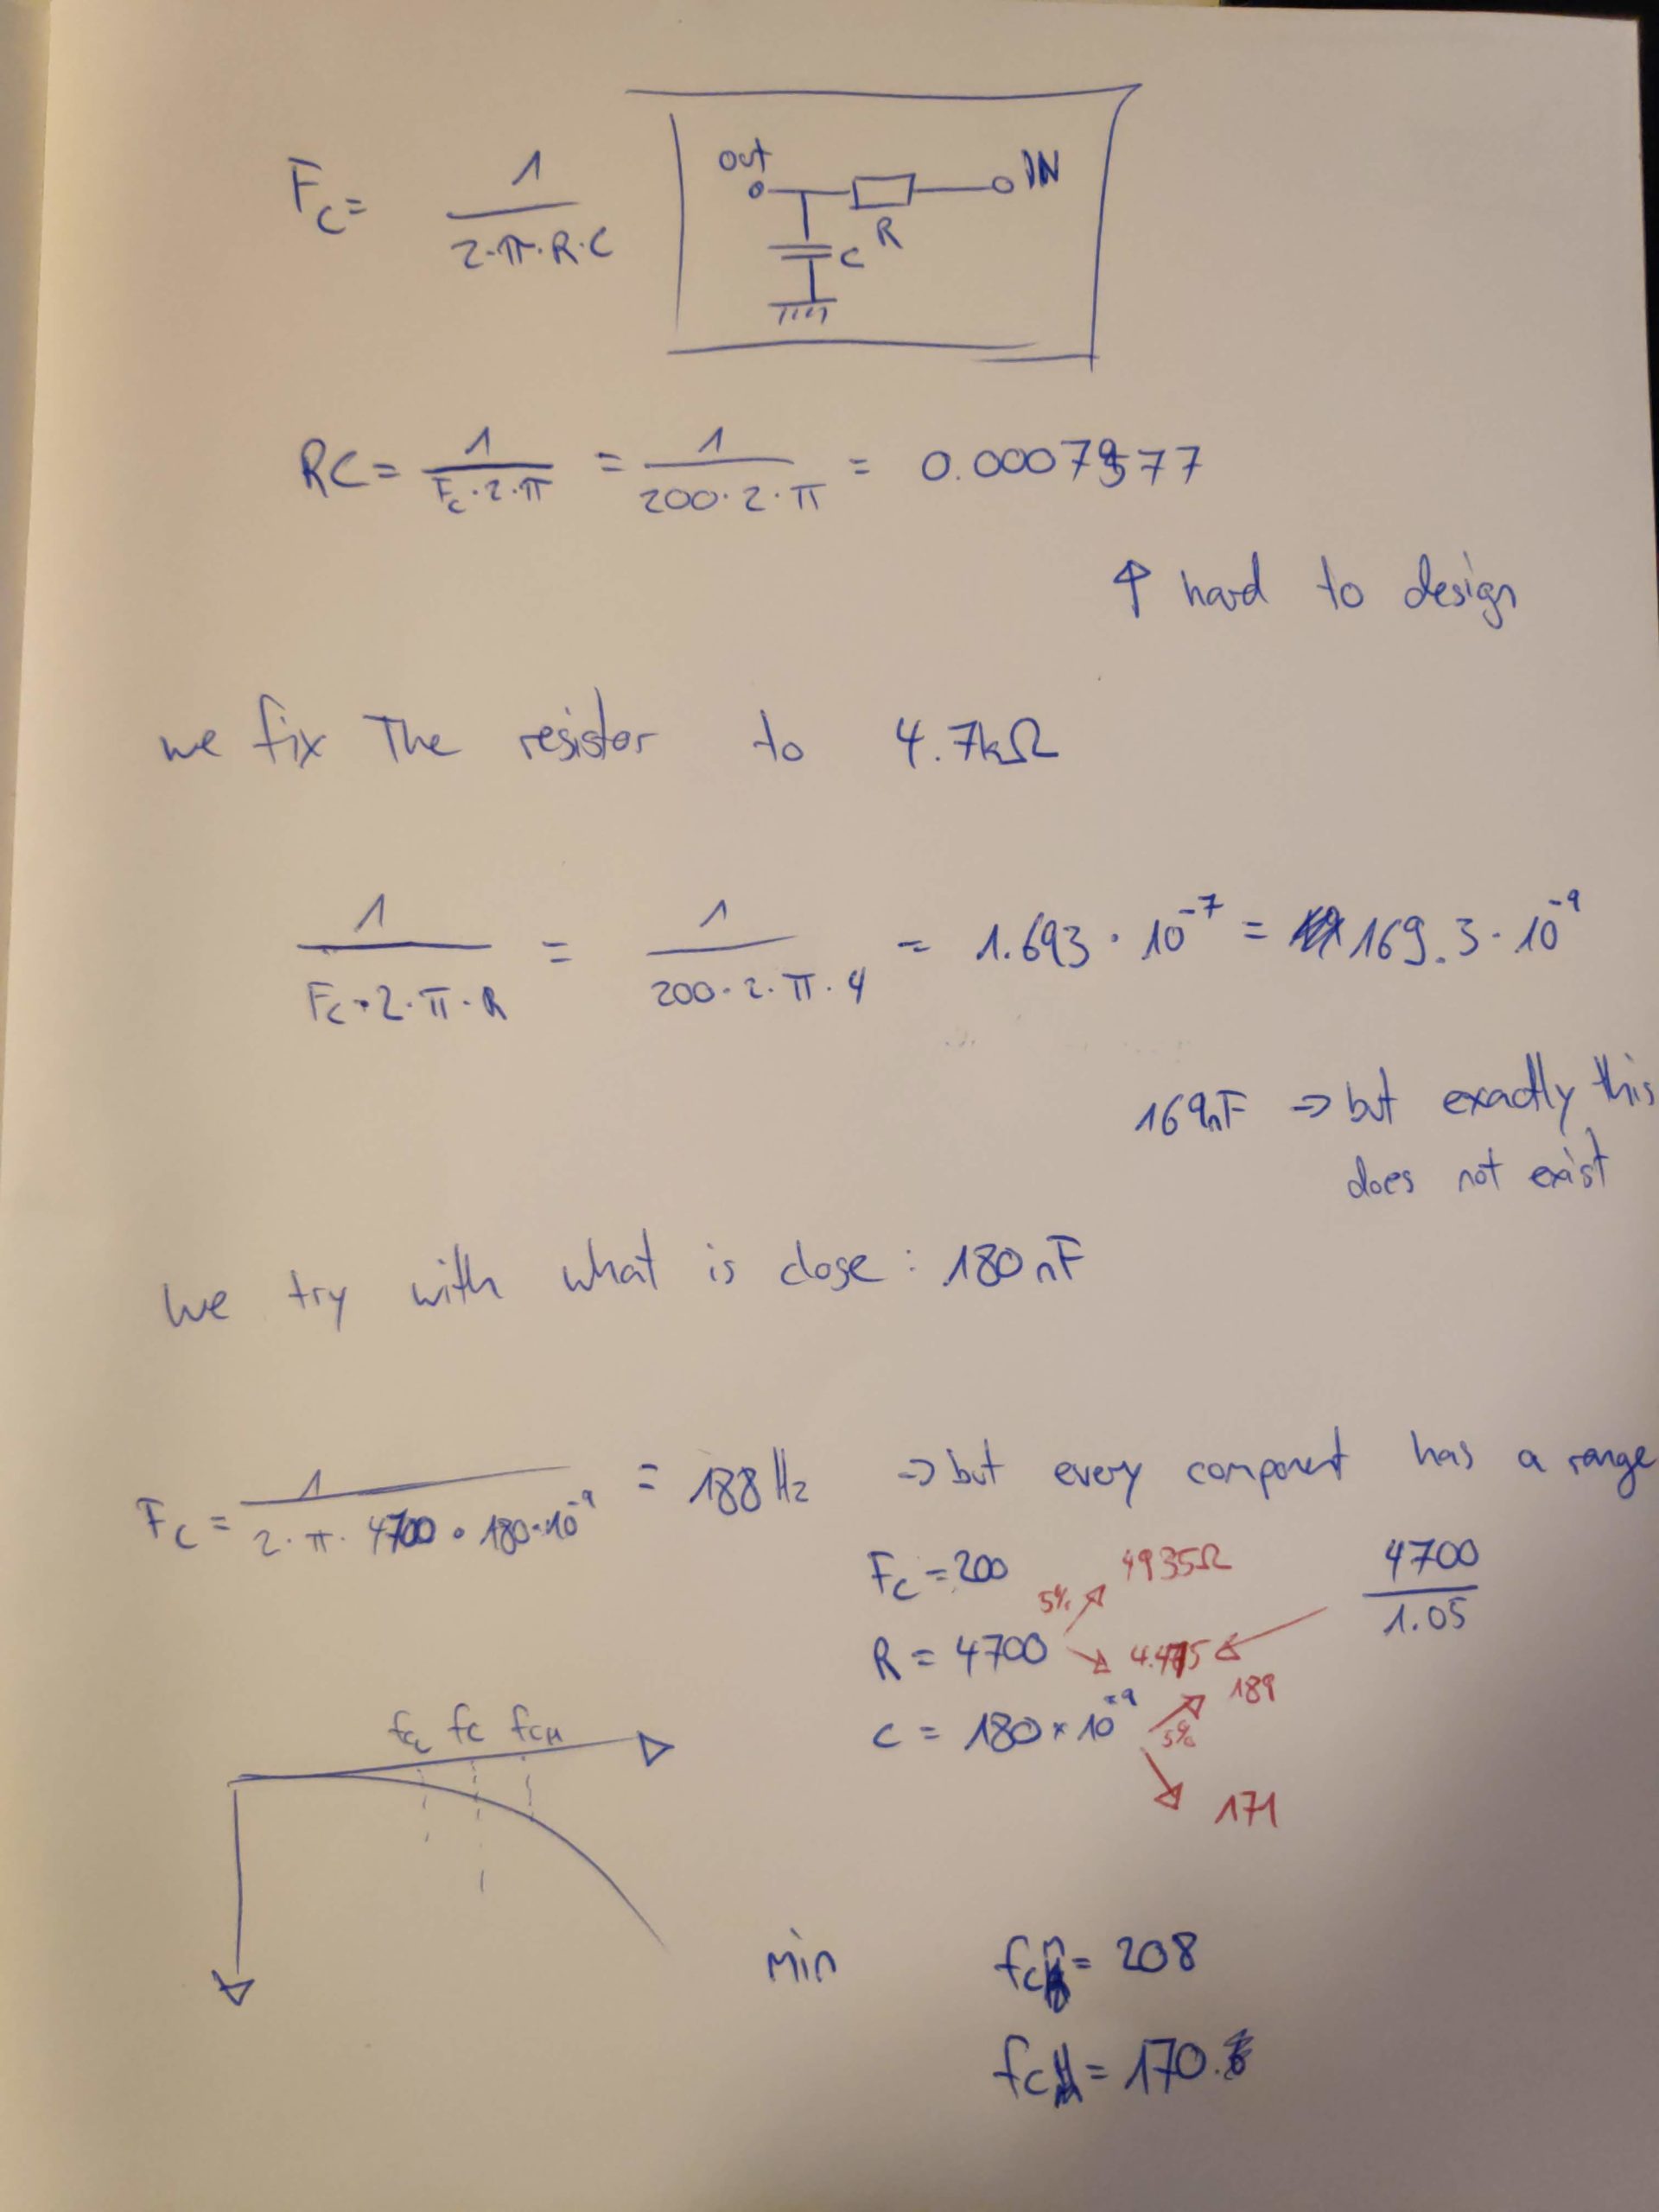 Fc = 1 / 2·π·R·C
out IN
R
C
RC = 1 / Fc·2·π = 1 / 200·2·π = 0.0007957 7
↑ hard to design
we fix The resistor to 4.7kΩ
1 / Fc·2·π·R = 1 / 200·2·π·4 = 1.693·10⁻⁷ = 169.3·10⁻⁹
169nF => but exactly this
does not exist
we try with what is close : 180nF
Fc = 1 / 2·π·4700·180·10⁻⁹ = 188Hz -> but every component has a range
Fc = 200 5% 4935Ω 4700 / 1.05
R = 4700 4.475
C = 180×10⁻⁹ 5% 189
171
fcL fc fcH
min fc = 208
fc = 170.